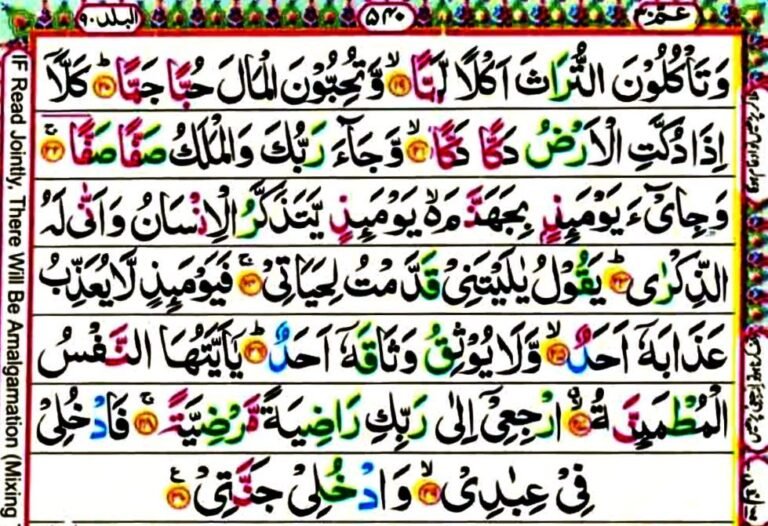 البلد ٩٠
٥٤٠
عمّ ٣٠
وَتَاْكُلُوْنَ التُّرَاثَ اَكْلًا لَّمًّا ۙ﴿۱۹﴾ وَّتُحِبُّوْنَ الْمَالَ حُبًّا جَمًّا ؕ﴿۲۰﴾ كَلَّاۤ
اِذَا دُكَّتِ الْاَرْضُ دَكًّا دَكًّا ۙ﴿۲۱﴾ وَّجَآءَ رَبُّكَ وَالْمَلَكُ صَفًّا صَفًّا ۚ﴿۲۲﴾
وَجِایْٓءَ يَوْمَىِٕذٍۭ بِجَهَنَّمَ ۬ۙ يَوْمَىِٕذٍ يَّتَذَكَّرُ الْاِنْسَانُ وَاَنّٰى لَهُ
الذِّكْرٰى ؕ﴿۲۳﴾ يَقُوْلُ يٰلَيْتَنِىْ قَدَّمْتُ لِحَيَاتِىْ ۚ﴿۲۴﴾ فَيَوْمَىِٕذٍ لَّا يُعَذِّبُ
عَذَابَهٗۤ اَحَدٌ ۙ﴿۲۵﴾ وَّلَا يُوْثِقُ وَثَاقَهٗۤ اَحَدٌ ؕ﴿۲۶﴾ يٰۤاَيَّتُهَا النَّفْسُ
الْمُطْمَىِٕنَّةُ ۖ﴿۲۷﴾ ارْجِعِىْۤ اِلٰى رَبِّكِ رَاضِيَةً مَّرْضِيَّةً ۚ﴿۲۸﴾ فَادْخُلِىْ
فِىْ عِبٰدِىْ ۙ﴿۲۹﴾ وَادْخُلِىْ جَنَّتِىْ ﴿۳۰﴾
IF Read Jointly, There Will Be Amalgamation (Mixing